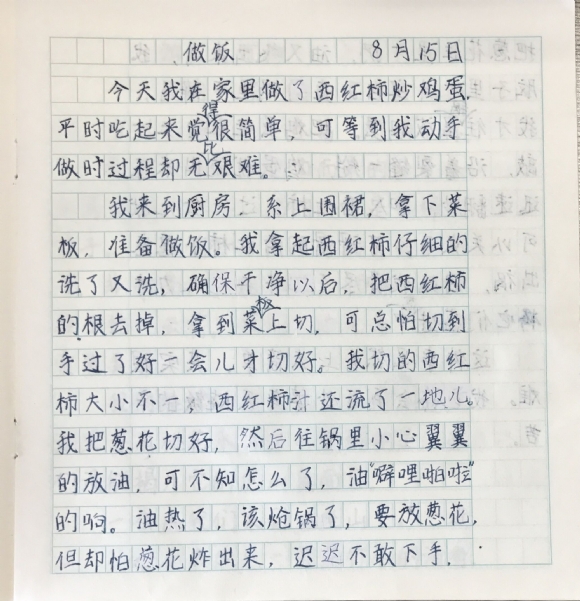 做饭 8月15日
今天我在家里做了西红柿炒鸡蛋,
平时吃起来觉得很简单,可等到我动手
做时过程却无比艰难。
我来到厨房,系上围裙,拿下菜
板,准备做饭。我拿起西红柿仔细的
洗了又洗,确保干净以后,把西红柿
的根去掉,拿到菜板上切,可总怕切到
手过了好一会儿才切好。我切的西红
柿大小不一,西红柿汁还流了一地儿。
我把葱花切好,然后往锅里小心翼翼
的放油,可不知怎么了,油“噼哩啪啦”
的响。油热了,该炝锅了,要放葱花,
但却怕葱花炸出来,迟迟不敢下手.